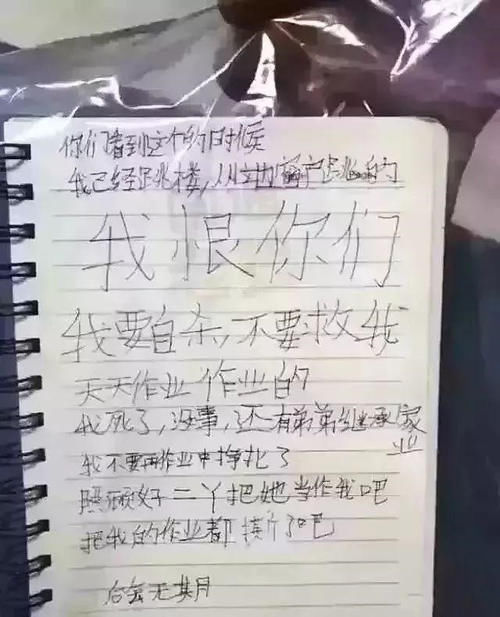 你们看到这个的时候
我已经跳楼,从 窗户跳的
我恨你们
我要自杀,不要救我
天天作业作业的
我死了,没事,还有弟弟继承家业
我不要再作业中挣扎了
照顾好二丫把她当作我吧
把我的作业都 了吧
后会无期